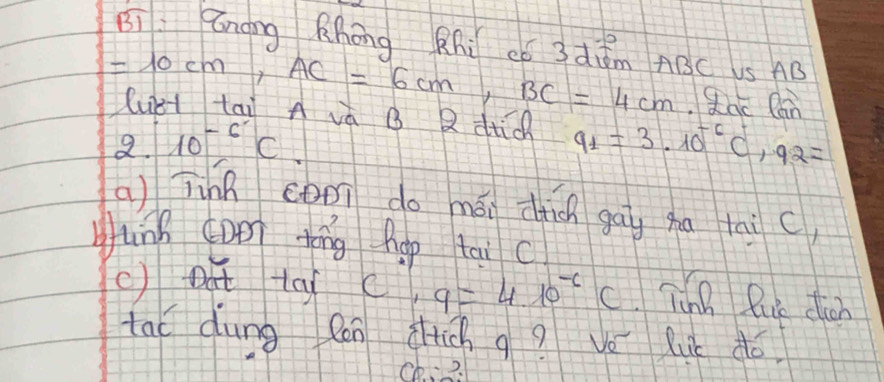 B1: Trong không khí có 3 điểm ABC vs AB
= 10 cm, AC = 6 cm, BC = 4 cm. Đặt lần
lượt tại A và B 2 đtích q1 = 3.10⁻⁶C, q2 =
2.10⁻⁶C.
a) Tính CĐĐT do mỗi đtích gây ra tại C,
b) tính CĐĐT tổng hợp tại C.
c) Đặt tại C, q = 4.10⁻⁶C. Tính lực điện
tác dụng lên đtích q? Vẽ lực đó.